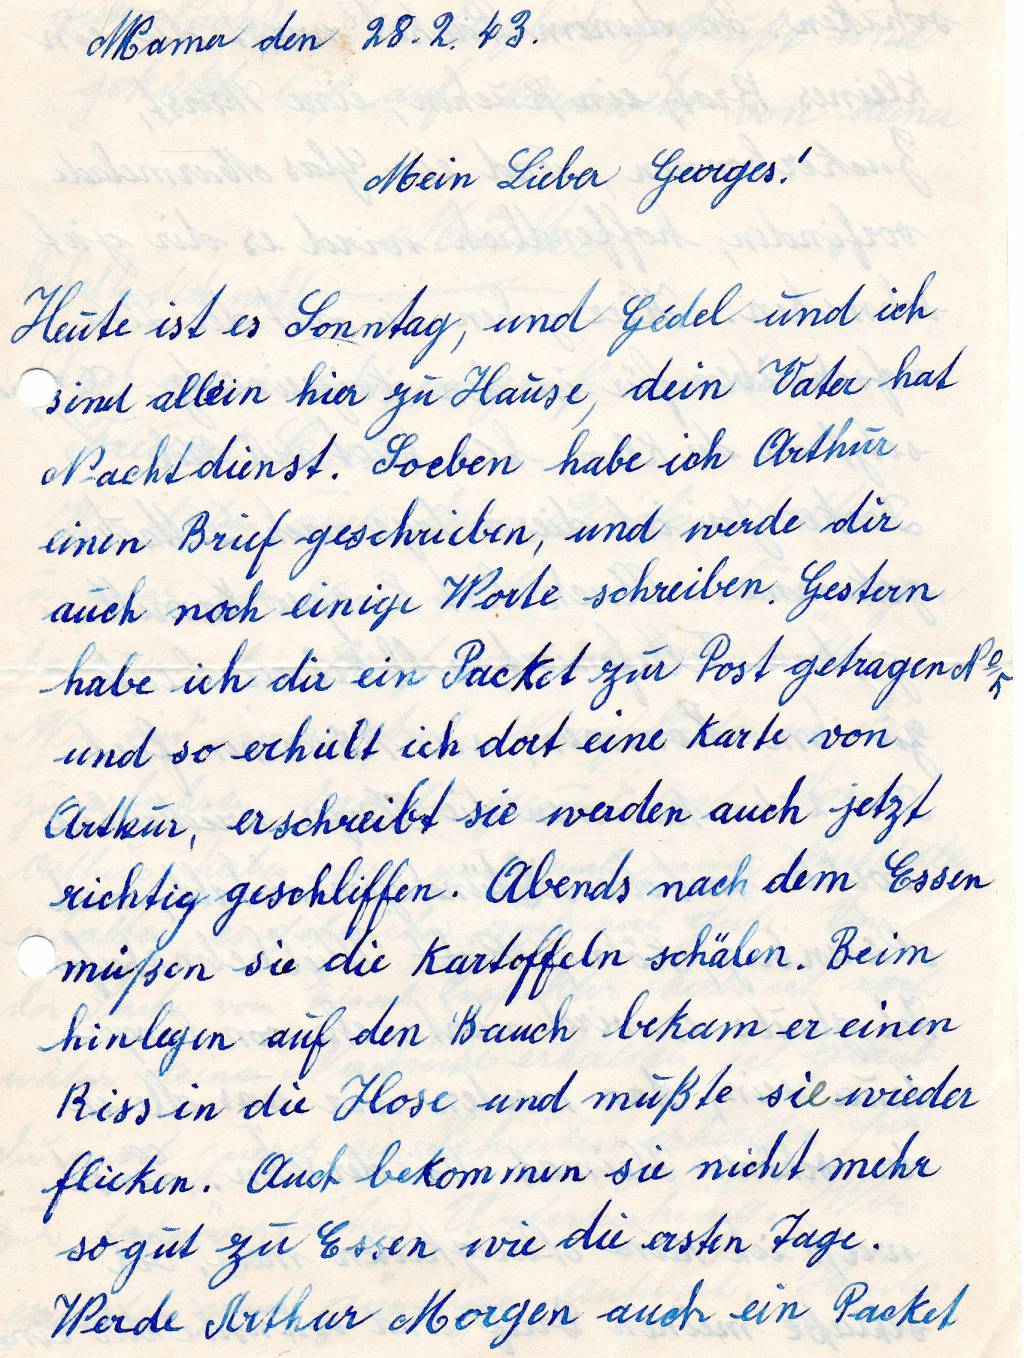 Mamer den 28.2.43.
Mein Lieber Georges!
Heute ist es Sonntag, und Gédel und ich
sind allein hier zu Hause, dein Vater hat
Nachtdienst. Soeben habe ich Arthur
einen Brief geschrieben, und werde dir
auch noch einige Worte schreiben. Gestern
habe ich dir ein Packet zur Post getragen No 5
und so erhielt ich dort eine Karte von
Arthur, er schreibt sie werden auch jetzt
richtig geschliffen. Abends nach dem Essen
müßen sie die Kartoffeln schälen. Beim
hinlegen auf den Bauch bekam er einen
Riss in die Hose und mußte sie wieder
flicken. Auch bekommen sie nicht mehr
so gut zu Essen wie die ersten Tage.
Werde Arthur Morgen auch ein Packet